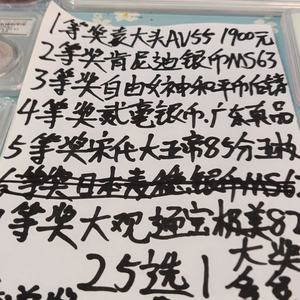 1等奖袁大头AU55 1900元
2等奖肯尼迪银币MS63
3等奖自由女神和平币
4等奖贰毫银币.广东
5等奖宋代大五帝85分
等奖日本 银币MS6
等奖大观通宝极美82
25选1
大奖